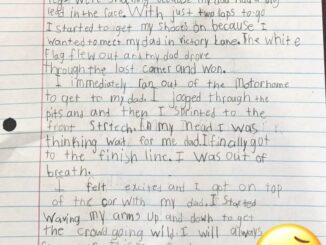 legs were shaking because my dad had a big
led in the face. With just two laps to go
I started to get my shoes on because I
wanted to meet my dad in victory lane. The white
flag flew out and my dad drove
through the last corner and won.
I immediately ran out of the motorhome
to get to my dad. I jogged through the
pits and then I sprinted to the
front stretch. In my mead I was
thinking wait for me dad. I finally got
to the finish line. I was out of
breath.
I felt excited and I got on top
of the car with my dad. I started
waving my arms up and down to get
the crowd going wild. I will always